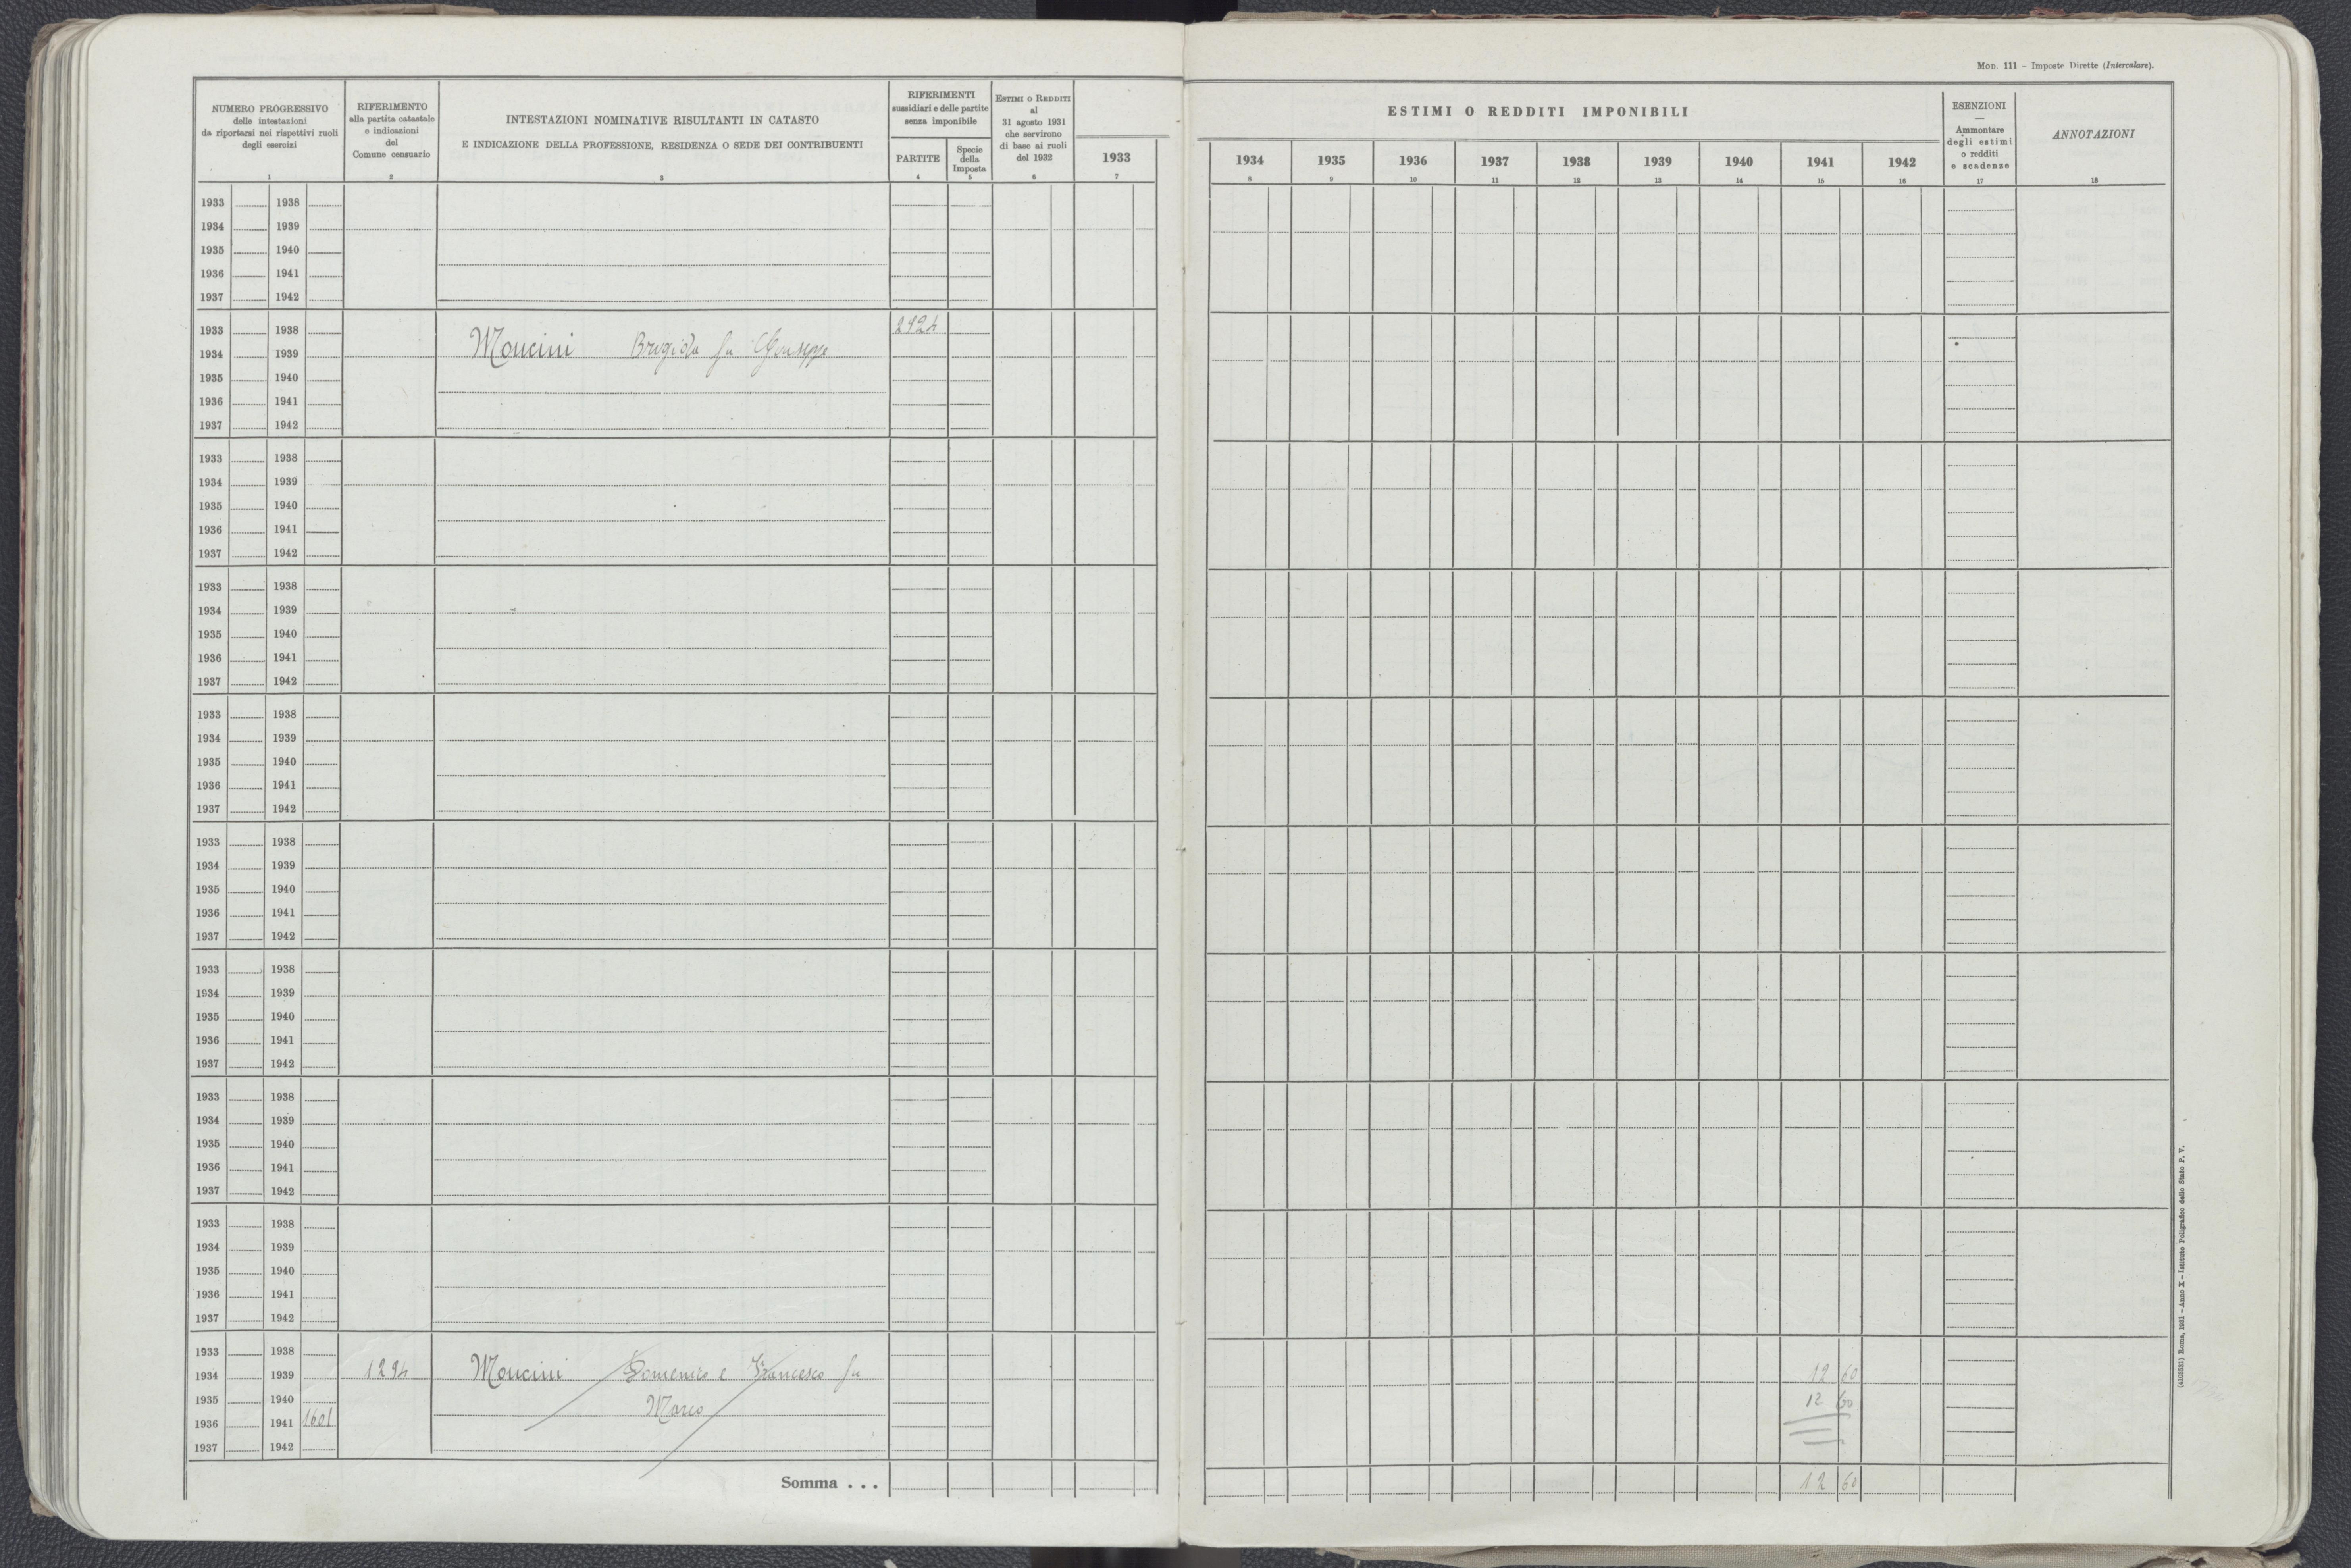 Mod. 111 – Imposte Dirette (Intercalare).
NUMERO PROGRESSIVO
delle intestazioni
da riportarsi nei rispettivi ruoli
degli esercizi
1
RIFERIMENTO
alla partita catastale
e indicazioni
del
Comune censuario
2
INTESTAZIONI NOMINATIVE RISULTANTI IN CATASTO
E INDICAZIONE DELLA PROFESSIONE, RESIDENZA O SEDE DEI CONTRIBUENTI
3
RIFERIMENTI
sussidiari e delle partite
senza imponibile
PARTITE
4
Specie
della
Imposta
5
Estimi o Redditi
al
31 agosto 1931
che servirono
di base ai ruoli
del 1932
6
1933
7
ESTIMI O REDDITI IMPONIBILI
1934 1935 1936 1937 1938 1939 1940 1941 1942
8 9 10 11 12 13 14 15 16
ESENZIONI
—
Ammontare
degli estimi
o redditi
e scadenze
17
ANNOTAZIONI
18
1933 1938
1934 1939
1935 1940
1936 1941
1937 1942
1933 1938 2924
1934 1939 Moncini Brigida fu Giuseppe
1935 1940
1936 1941
1937 1942
1933 1938
1934 1939
1935 1940
1936 1941
1937 1942
1933 1938
1934 1939
1935 1940
1936 1941
1937 1942
1933 1938
1934 1939
1935 1940
1936 1941
1937 1942
1933 1938
1934 1939
1935 1940
1936 1941
1937 1942
1933 1938
1934 1939
1935 1940
1936 1941
1937 1942
1933 1938
1934 1939
1935 1940
1936 1941
1937 1942
1933 1938
1934 1939
1935 1940
1936 1941
1937 1942
1933 1938
1934 1939 1294 Moncini Domenico e Francesco fu 12 60
1935 1940 Marco 12 60
1936 1941 1601
1937 1942
Somma . . . 12 60
(4106531) Roma, 1931 – Anno X – Istituto Poligrafico dello Stato P. V.